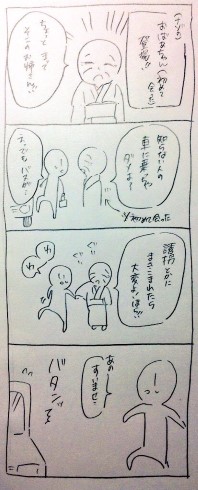 (ナゾの)
おばあちゃん(初めて会った)
登場!!
ちょっとまって
そこのお姉さん!!
知らない人の
車に乗っちゃ
ダメよー
え、でもバスが…
初めて会った
誘拐とかに
まきこまれたら
大変よ、ほら!!
ぐいぐい
わ
わ
あの
すいませ…
バタンッ